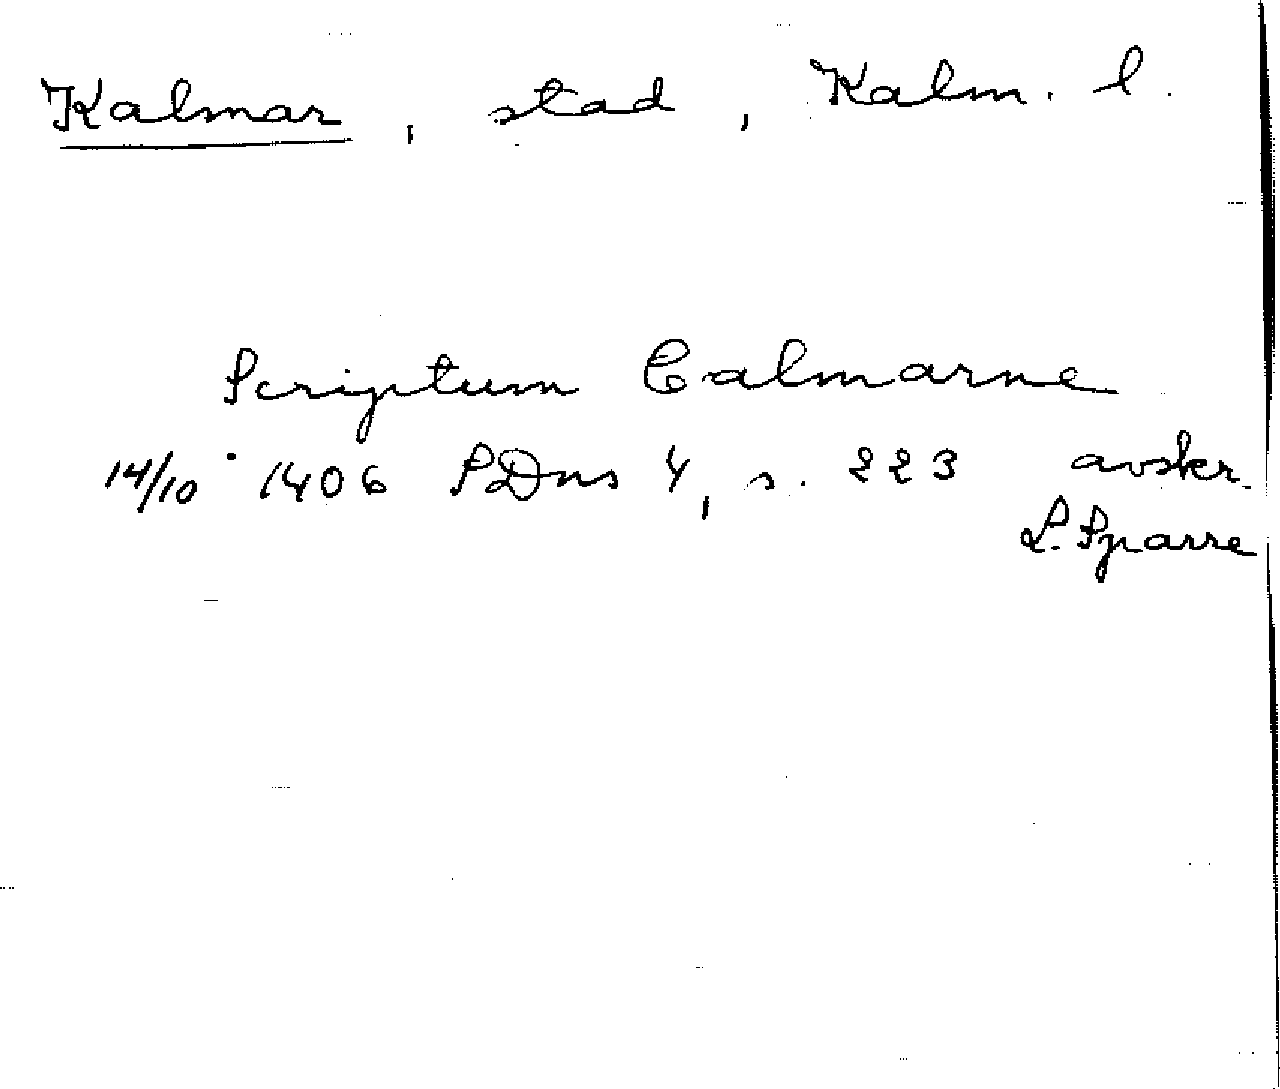 Kalmar, stad, Kalm. l.
Scriptum Calmarne
14/10 1406 SDns 4, s. 223 avskr.
L. Sparre